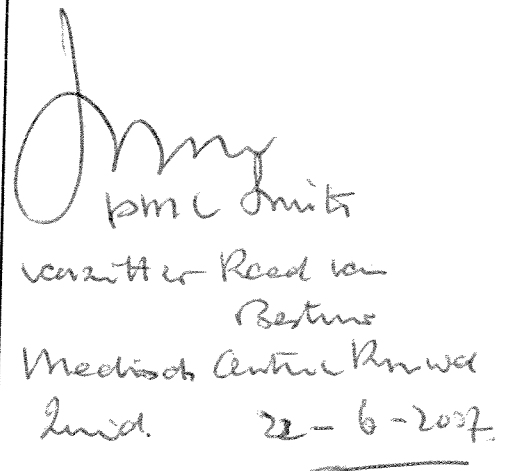 pmc Smits
voorzitter Raad van
Bestuur
Medisch Centrum Rijnmond
Zuid. 22-6-2007.